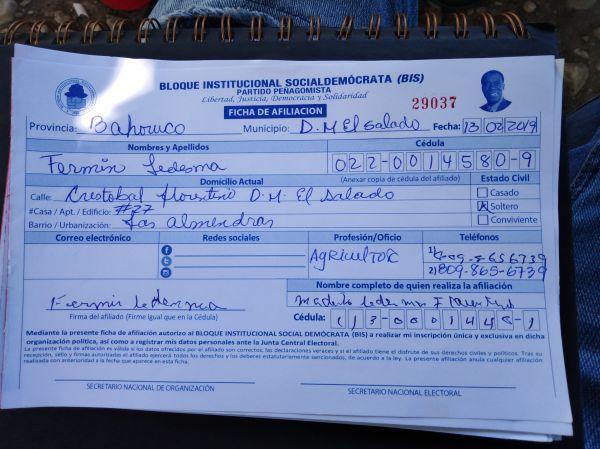 BLOQUE INSTITUCIONAL SOCIALDEMÓCRATA (BIS)
PARTIDO PEÑAGOMISTA
Libertad, Justicia, Democracia y Solidaridad
29037
FICHA DE AFILIACION
Provincia: Bahoruco Municipio: D.M El Salado Fecha: 13 02 2019
Nombres y Apellidos Cédula
Fermin Ledesma 022-0014580-9
Domicilio Actual (Anexar copia de cédula del afiliado) Estado Civil
Calle: Cristobal florentino D.M. El Salado Casado
#Casa / Apt. / Edificio: #27 X Soltero
Barrio / Urbanización: Las almendras Conviviente
Correo electrónico Redes sociales Profesión/Oficio Teléfonos
AgRicultoR 1)
2) 809-865-6739
Nombre completo de quien realiza la afiliación
Fermin ledesma
Firma del afiliado (Firme igual que en la Cédula) Cédula:
Mediante la presente ficha de afiliación autorizo al BLOQUE INSTITUCIONAL SOCIAL DEMÓCRATA (BIS) a realizar mi inscripción única y exclusiva en dicha
organización política, así como a registrar mis datos personales ante la Junta Central Electoral.
La presente ficha de afiliación es válida si los datos ofrecidos por el afiliado son correctos, las declaraciones veraces y si el afiliado tiene el disfrute de sus derechos civiles y políticos. Tras su
recepción, sello y firmas autorizadas el afiliado ejercerá todos los derechos y los deberes estatutariamente sancionados, de acuerdo a la ley. La presente afiliación anula cualquier afiliación
realizada con anterioridad a la fecha que aparece en esta ficha.
SECRETARIO NACIONAL DE ORGANIZACIÓN SECRETARIO NACIONAL ELECTORAL